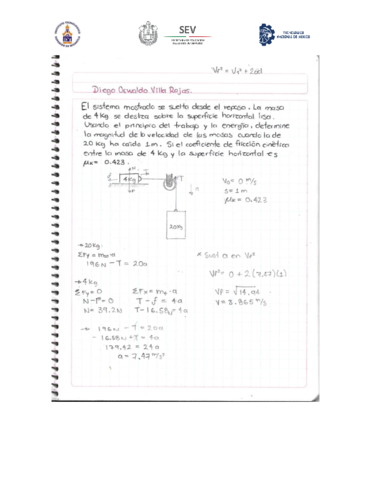 SEV
Vf² = Vo² + 2ad
Diego Oswaldo Villa Rojas.
El sistema mostrado se suelta desde el reposo. La masa
de 4 Kg se desliza sobre la superficie horizontal lisa.
Usando el principio del trabajo y la energía, determine
la magnitud de la velocidad de las masas cuando la de
20 Kg ha caido 1m. Si el coeficiente de fricción cinética
entre la masa de 4 Kg y la superficie horizontal es
μk = 0.423.
4 Kg
T
20 Kg
V0 = 0 m/s
s = 1 m
μk = 0.423
→ 20 Kg
ΣFy = m·a
196N - T = 20a
→ 4 Kg
ΣFy = 0
N - P = 0
N = 39.2N
ΣFx = m·a
T - f = 4a
T - 16.58N = 4a
→ 196N - T = 20a
- 16.58N + T = 4a
179.42 = 24a
a = 7.47 m/s²
* Sust a en Vf²
Vf² = 0 + 2(7.47)(1)
Vf = √14.94
V = 3.865 m/s